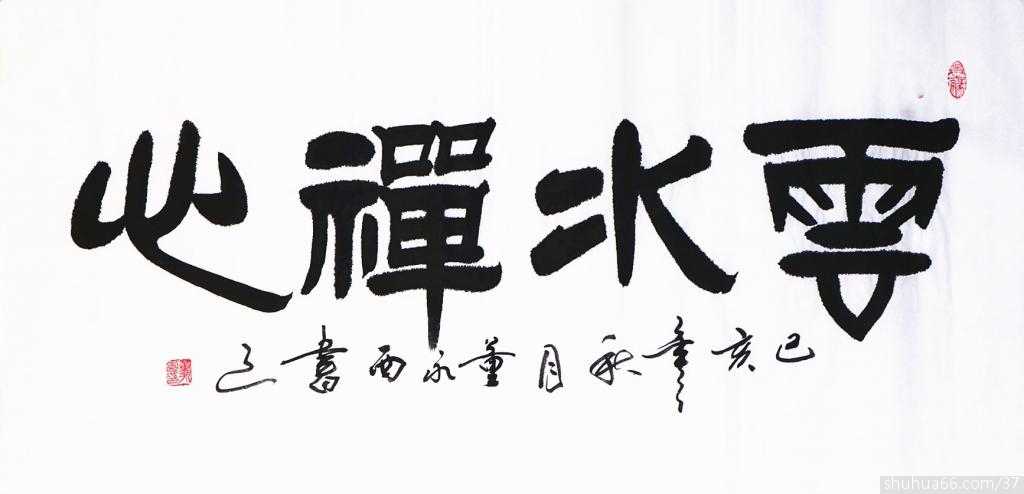 雲水禪心
己亥年秋月董永西書
shuhua66.com/37